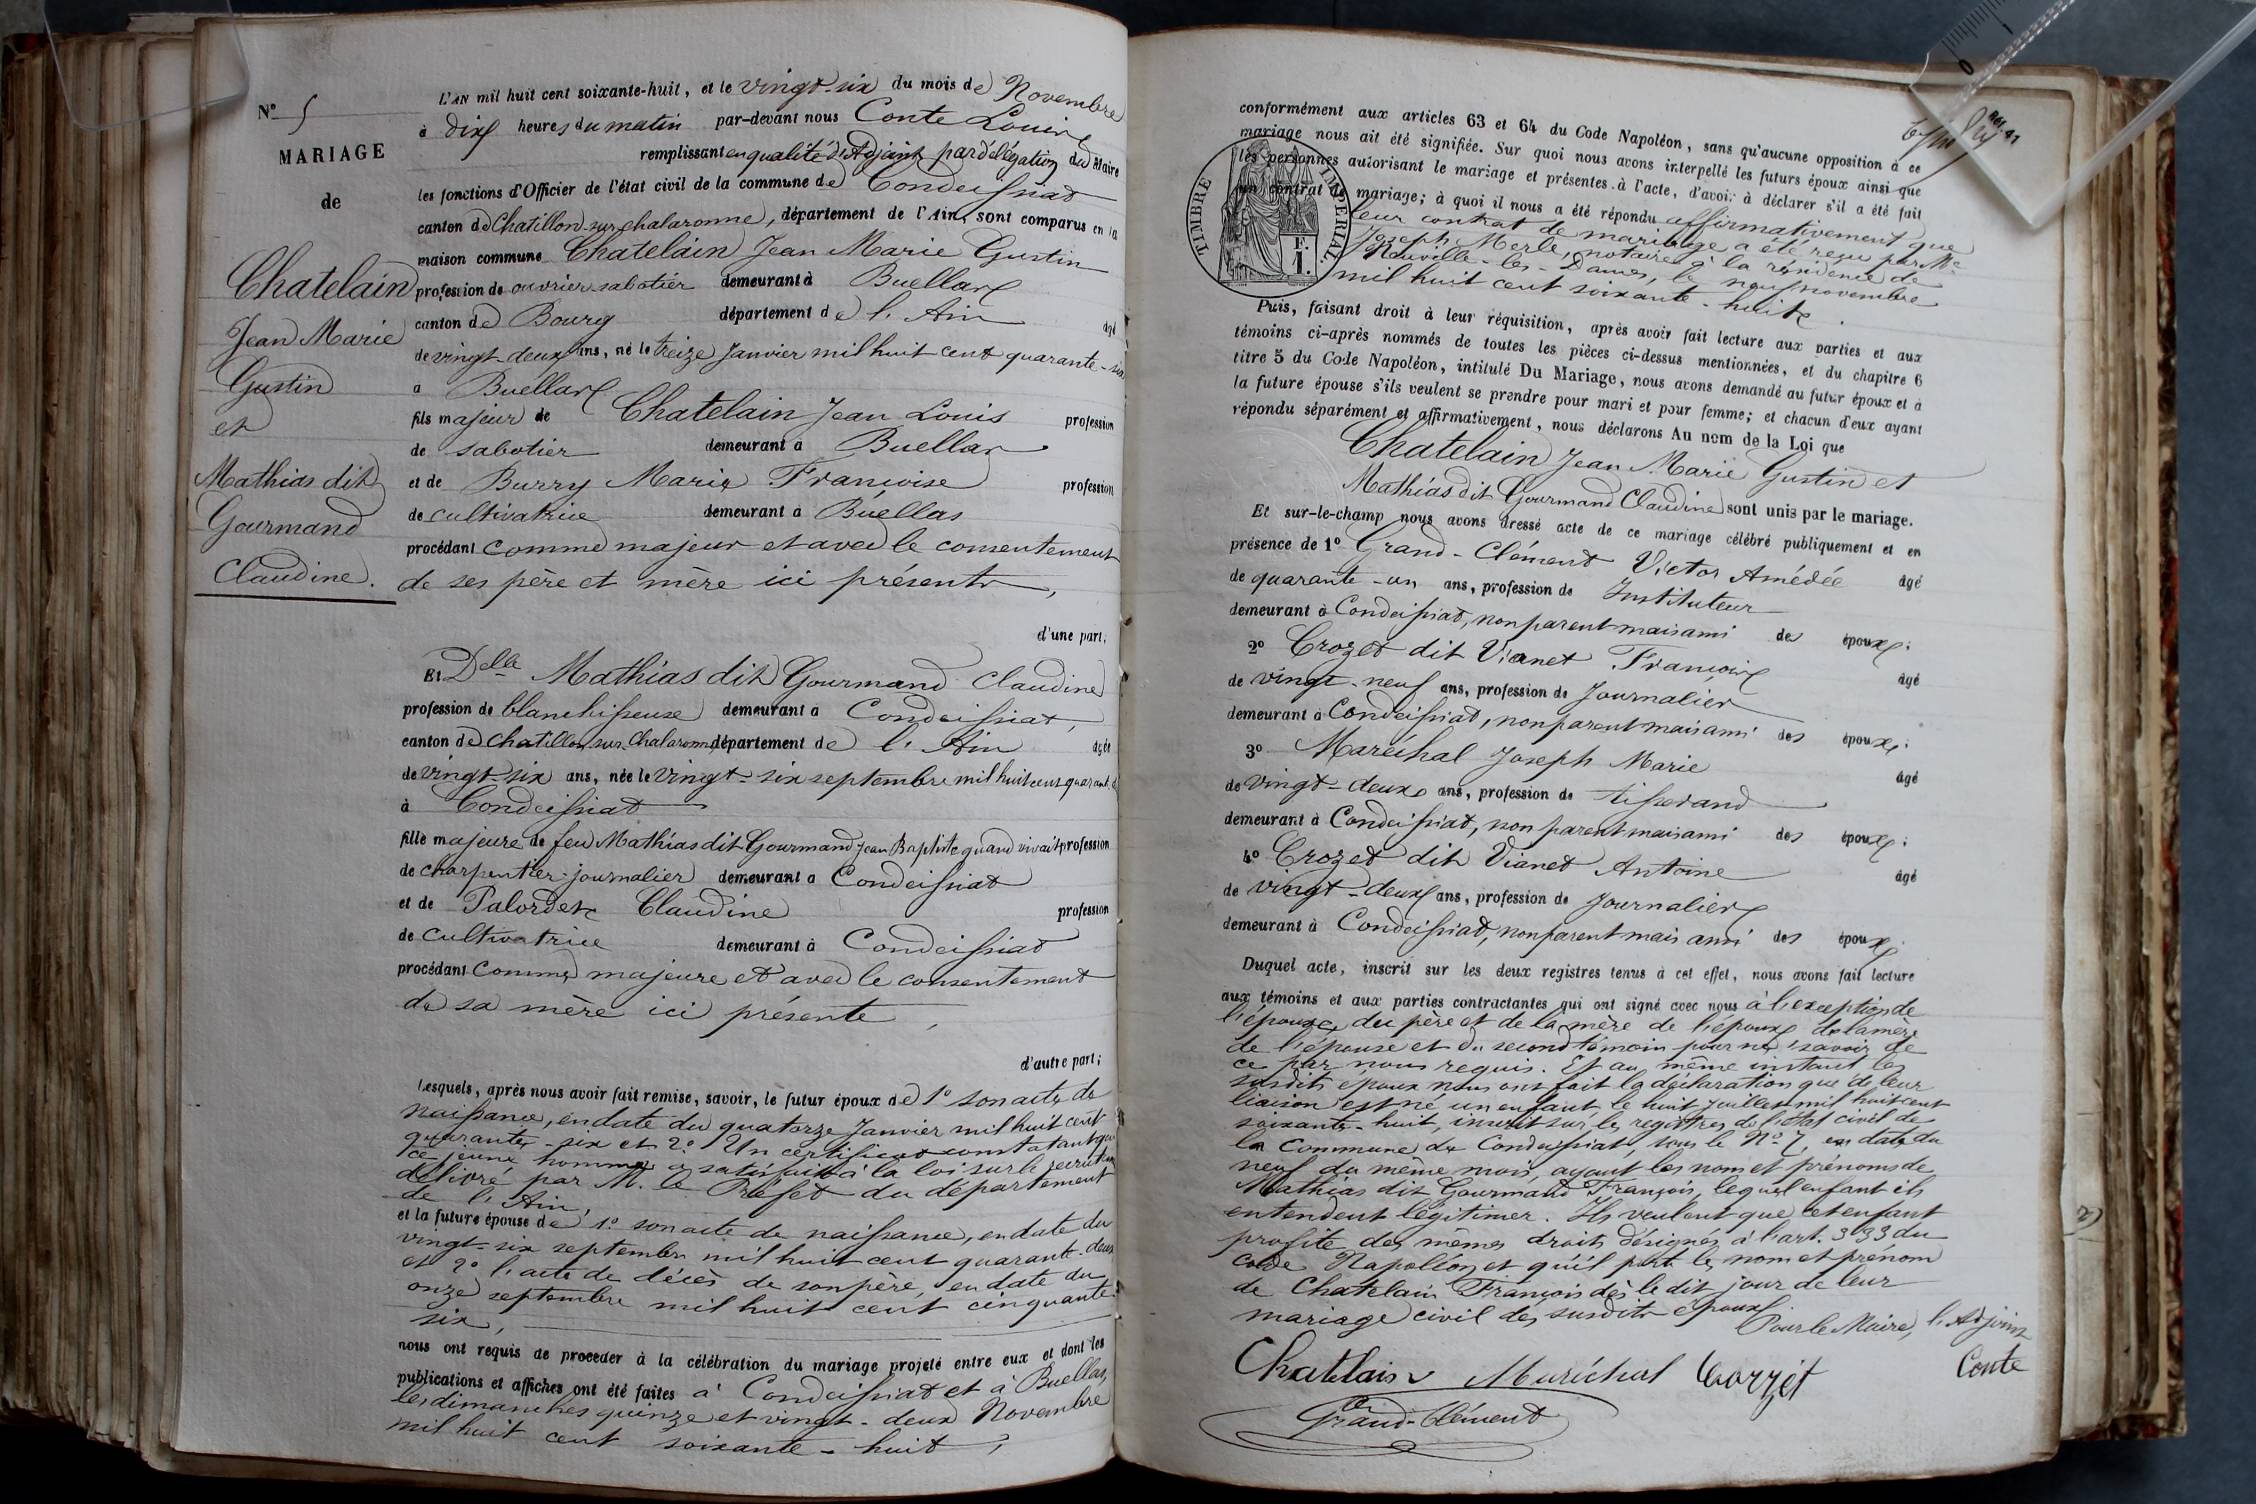 N° 5
MARIAGE
de
Chatelain
Jean Marie
Gustin
et
Mathias dit
Gourmand
Claudine.
L'AN mil huit cent soixante-huit, et le vingt-six du mois de Novembre
à dix heures du matin par-devant nous Conte Louis
remplissant en qualité d'Adjoint par délégation du Maire
les fonctions d'Officier de l'état civil de la commune de Condeissiat
canton de Chatillon-sur-chalaronne, département de l'Ain, sont comparus en la
maison commune Chatelain Jean Marie Gustin
profession de ouvrier sabotier demeurant à Buellas
canton de Bourg département de l'Ain âgé
de vingt-deux ans, né le treize Janvier mil huit cent quarante-six
à Buellas
fils majeur de Chatelain Jean Louis profession
de sabotier demeurant à Buellas
et de Burry Marie Françoise profession
de cultivatrice demeurant à Buellas
procédant comme majeur et avec le consentement
de ses père et mère ici présents,
d'une part;
Et Delle Mathias dit Gourmand Claudine
profession de blanchisseuse demeurant à Condeissiat,
canton de Chatillon-sur-Chalaronne département de l'Ain âgée
de vingt-six ans, née le vingt-six septembre mil huit cent quarante
à Condeissiat
fille majeure de feu Mathias dit Gourmand Jean Baptiste quand vivait profession
de charpentier-journalier demeurant à Condeissiat
et de Palordet Claudine profession
de cultivatrice demeurant à Condeissiat
procédant comme majeure et avec le consentement
de sa mère ici présente,
d'autre part;
Lesquels, après nous avoir fait remise, savoir, le futur époux de 1° son acte de
naissance, en date du quatorze Janvier mil huit cent
quarante-six et 2° Un certificat constatant que
ce jeune homme a satisfait à la loi sur le recrutement
délivré par M. le Préfet du département
de l'Ain,
et la future épouse de 1° son acte de naissance, en date du
vingt-six septembre mil huit cent quarante-deux
et 2° l'acte de décès de son père, en date du
onze septembre mil huit cent cinquante-
six,
nous ont requis de procéder à la célébration du mariage projeté entre eux et dont les
publications et affiches ont été faites à Condeissiat et à Buellas,
les dimanches quinze et vingt-deux Novembre
mil huit cent soixante-huit,
conformément aux articles 63 et 64 du Code Napoléon, sans qu'aucune opposition à ce
mariage nous ait été signifiée. Sur quoi nous avons interpellé les futurs époux ainsi que
les personnes autorisant le mariage et présentes à l'acte, d'avoir à déclarer s'il a été fait
un contrat de mariage; à quoi il nous a été répondu affirmativement que
leur contrat de mariage a été reçu par Me
Joseph Merle, notaire à la résidence de
Neuville-les-Dames, le neuf novembre
mil huit cent soixante-huit.
TIMBRE IMPÉRIAL
F. 1.
Puis, faisant droit à leur réquisition, après avoir fait lecture aux parties et aux
témoins ci-après nommés de toutes les pièces ci-dessus mentionnées, et du chapitre 6
titre 5 du Code Napoléon, intitulé Du Mariage, nous avons demandé au futur époux et à
la future épouse s'ils veulent se prendre pour mari et pour femme; et chacun d'eux ayant
répondu séparément et affirmativement, nous déclarons Au nom de la Loi que
Chatelain Jean Marie Gustin et
Mathias dit Gourmand Claudine sont unis par le mariage.
Et sur-le-champ nous avons dressé acte de ce mariage célébré publiquement et en
présence de 1° Grand-Clément Victor Amédée âgé
de quarante-un ans, profession de Instituteur
demeurant à Condeissiat, non parent mais ami des époux;
2° Crozet dit Vianet François âgé
de vingt-neuf ans, profession de Journalier
demeurant à Condeissiat, non parent mais ami des époux;
3° Maréchal Joseph Marie âgé
de vingt-deux ans, profession de tisserand
demeurant à Condeissiat, non parent mais ami des époux;
4° Crozet dit Vianet Antoine âgé
de vingt-deux ans, profession de Journalier
demeurant à Condeissiat, non parent mais ami des époux;
Duquel acte, inscrit sur les deux registres tenus à cet effet, nous avons fait lecture
aux témoins et aux parties contractantes qui ont signé avec nous à l'exception de
l'épouse, du père et de la mère de l'époux de la mère
de l'épouse et du second témoin pour ne savoir de
ce par nous requis. Et au même instant les
susdits époux nous ont fait la déclaration que de leur
liaison est né un enfant le huit juillet mil huit cent
soixante-huit, inscrit sur les registres de l'état civil de
la Commune de Condeissiat, sous le N° 7, en date du
neuf du même mois, ayant les nom et prénoms de
Mathias dit Gourmand François, lequel enfant ils
entendent légitimer. Ils veulent que cet enfant
profite des mêmes droits désignés à l'art. 333 du
code Napoléon et qu'il porte les nom et prénom
de Chatelain François dès le dit jour de leur
mariage civil des susdits époux.
Pour le Maire, l'Adjoint
Chatelain Maréchal Crozet Conte
Grand-Clément